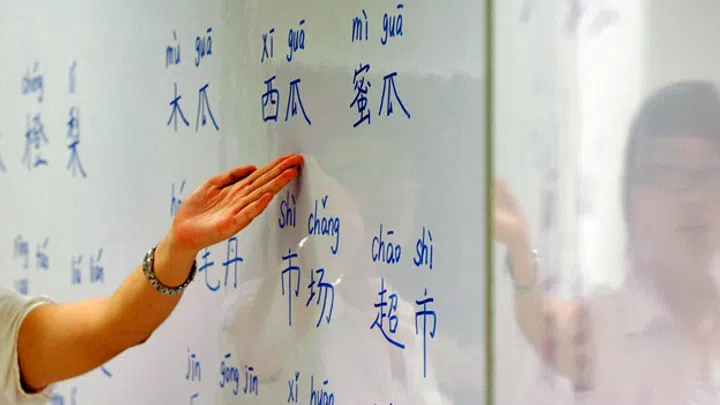 mù guā xī guā mì guā
木瓜 西瓜 蜜瓜
chéng lí
橙 梨
shì chǎng chāo shì
毛丹 市场 超市
jīn gōng jīn xǐ huān